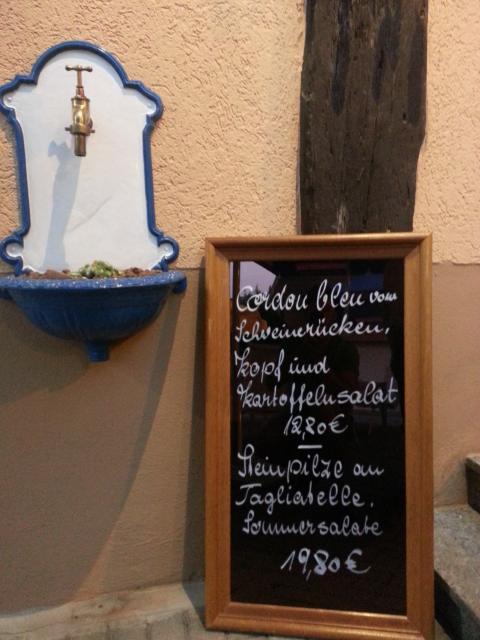 Cordon bleu vom
Schweinerücken,
Kopf und
Kartoffelnsalat
12,20€
Steinpilze an
Tagliatelle,
Sommersalate
19,80€